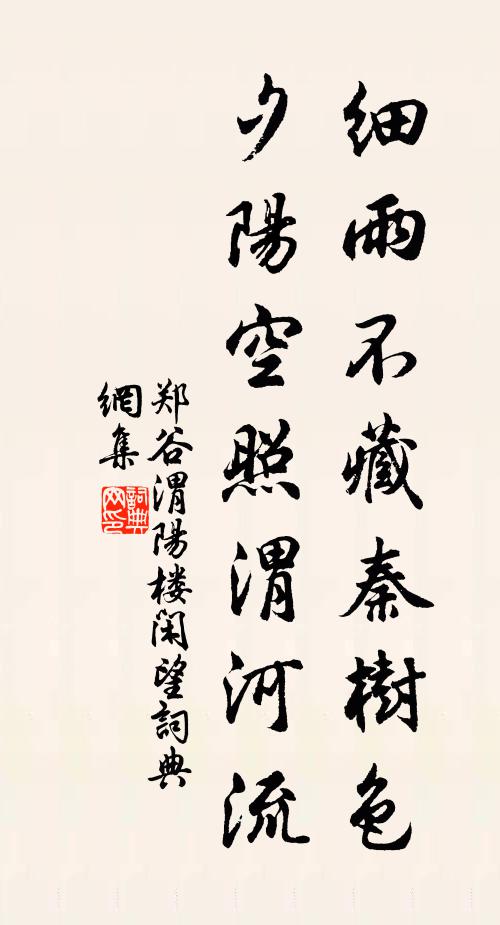 细雨不藏秦樹色
夕陽空照渭河流
郑谷渭陽楼闲望詞典
網集
詞典
网印